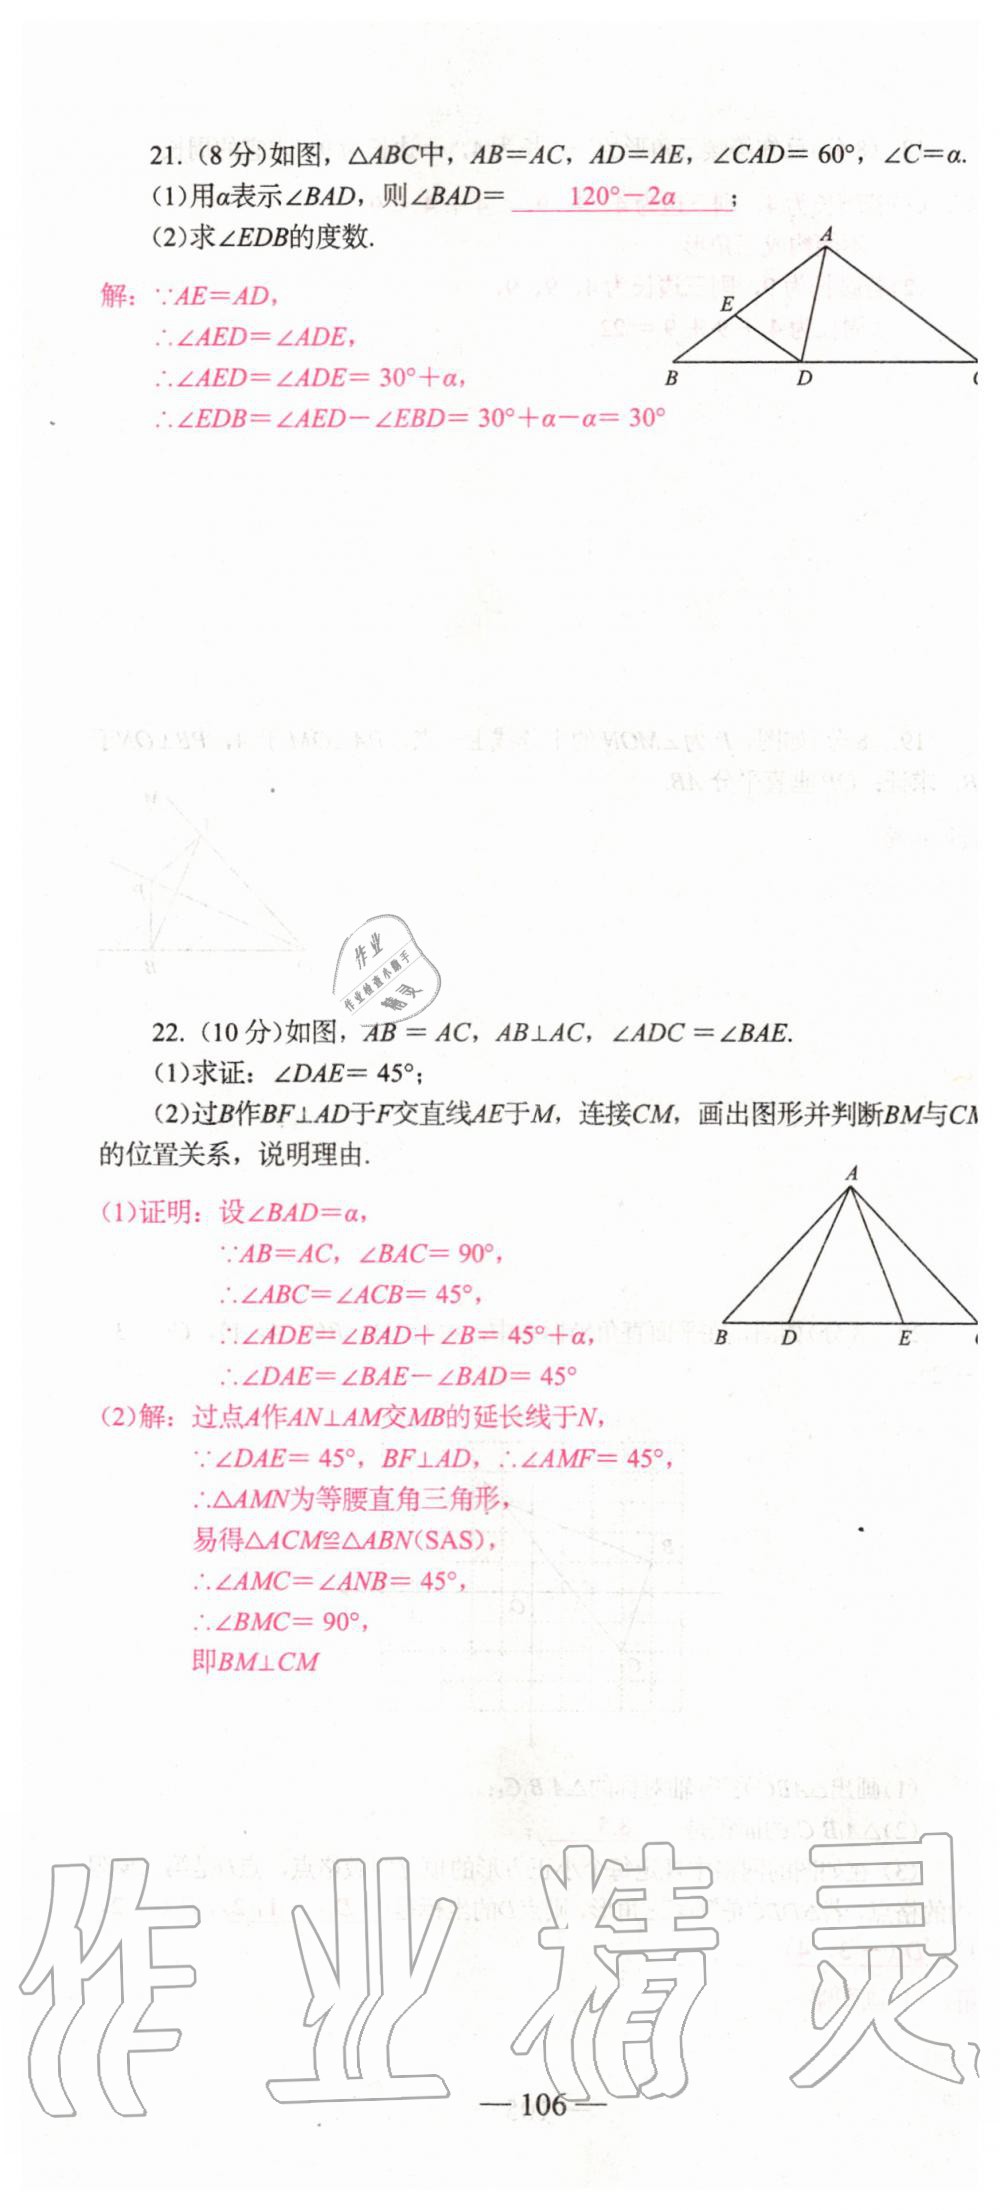 21. (8分)如图，△ABC中，AB=AC，AD=AE，∠CAD= 60°，∠C=α.
(1)用α表示∠BAD，则∠BAD= 120°-2α ；
(2)求∠EDB的度数.
A
E
B
D
解：∵AE=AD，
∴∠AED=∠ADE，
∴∠AED=∠ADE= 30°+α，
∴∠EDB=∠AED-∠EBD= 30°+α-α= 30°
作业
作业检查小助手
精灵
22. (10分)如图，AB = AC，AB⊥AC，∠ADC =∠BAE.
(1)求证：∠DAE= 45°；
(2)过B作BF⊥AD于F交直线AE于M，连接CM，画出图形并判断BM与CM
的位置关系，说明理由.
A
B
D
E
(1)证明：设∠BAD=α，
∵AB=AC，∠BAC= 90°，
∴∠ABC=∠ACB= 45°，
∴∠ADE=∠BAD+∠B= 45°+α，
∴∠DAE=∠BAE-∠BAD= 45°
(2)解：过点A作AN⊥AM交MB的延长线于N，
∵∠DAE= 45°，BF⊥AD，∴∠AMF= 45°，
∴△AMN为等腰直角三角形，
易得△ACM≌△ABN(SAS)，
∴∠AMC=∠ANB= 45°，
∴∠BMC= 90°，
即BM⊥CM
作业精灵
— 106 —